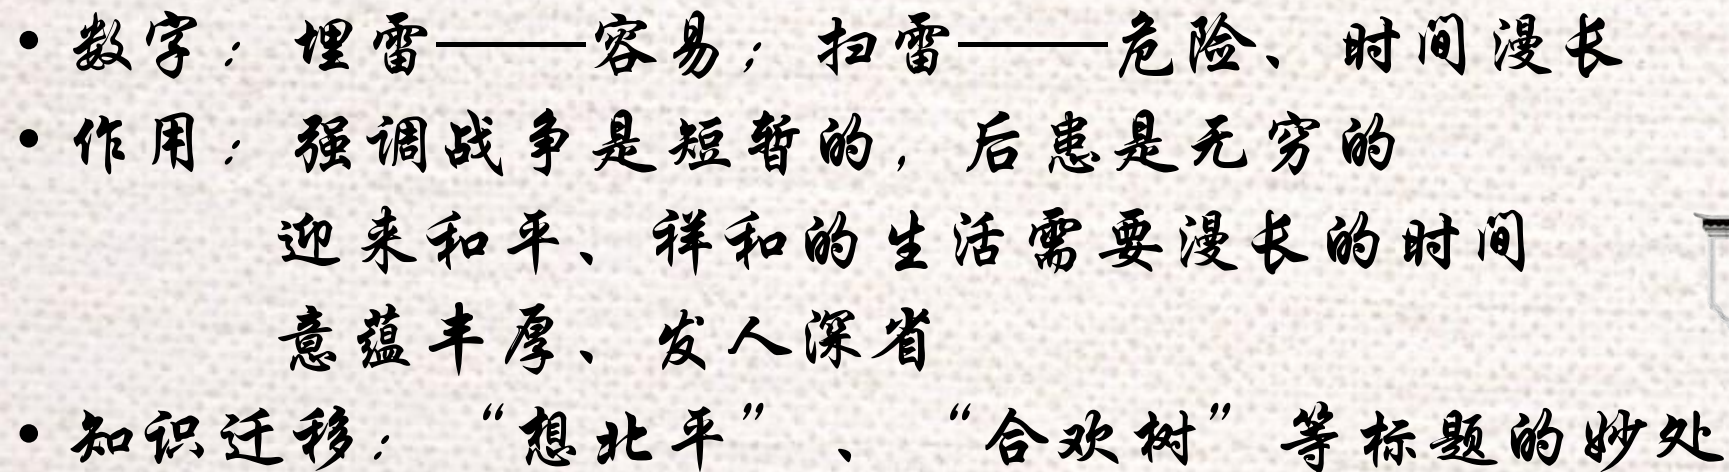 • 数字：埋雷——容易；扫雷——危险、时间漫长
• 作用：强调战争是短暂的，后患是无穷的
迎来和平、祥和的生活需要漫长的时间
意蕴丰厚、发人深省
• 知识迁移：“想北平”、“合欢树”等标题的妙处